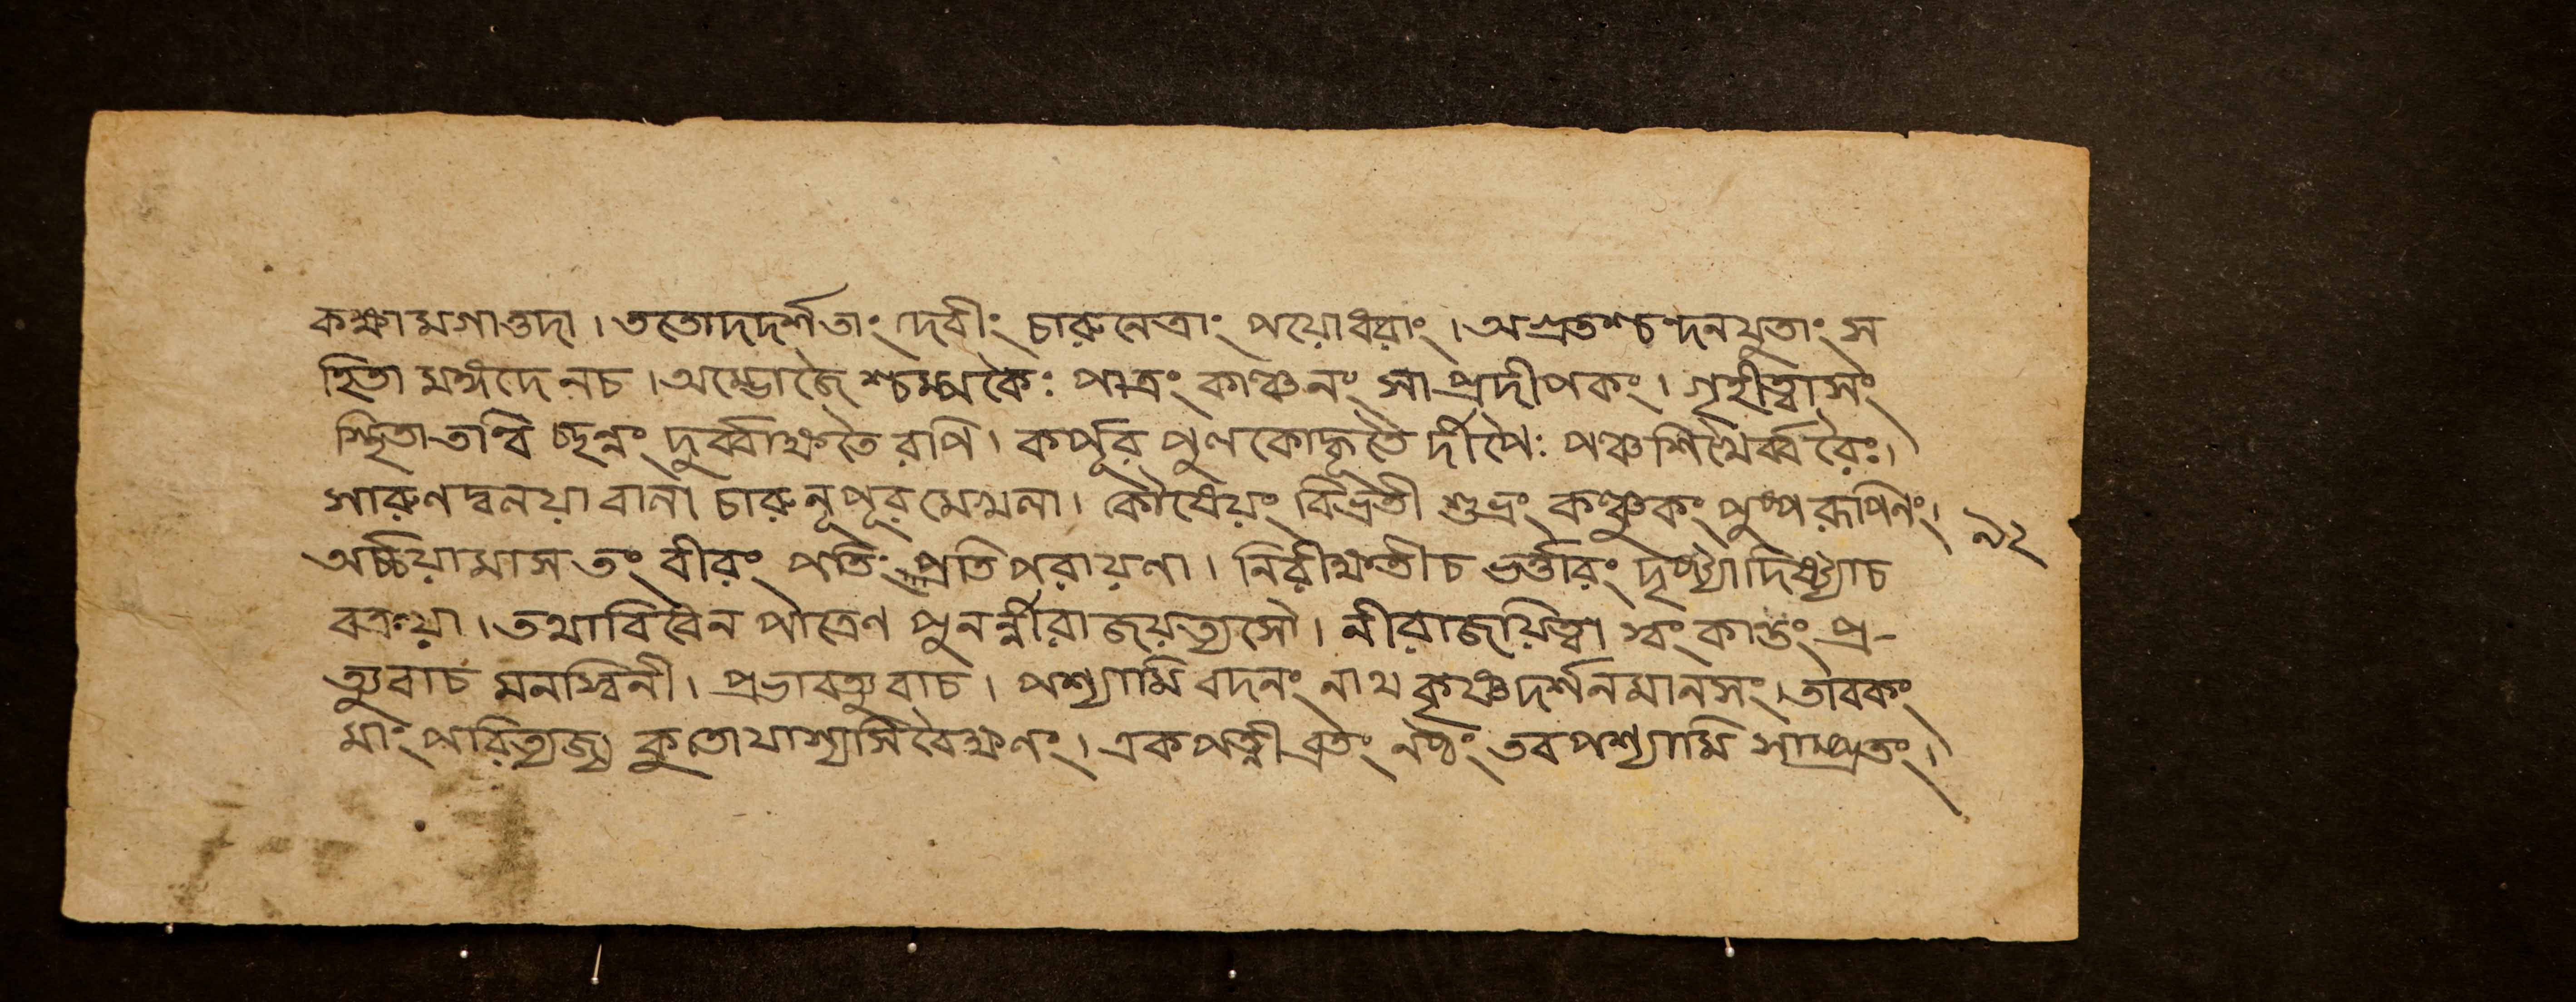 কক্ষামগাত্তদা । ততোদদর্শতাং দেবীং চারুনেত্রাং পয়োধরাং । অগ্রতশ্চন্দনযুতাং স
হিতা মঙ্গদেনচ । অম্ভোজৈ শ্চম্পকৈঃ পাত্রং কাঞ্চনং সাপ্রদীপকং । গৃহীত্বাসং
স্থিতাতন্বি চ্ছন্নং দুর্ব্বাক্ষতৈ রপি । কর্পূর পুলকোদ্ভূতৈ র্দীপৈঃ পঞ্চশিখৈর্ব্বরৈঃ ।
সারুণদ্বলয়াবালা চারুনূপূরমেখলা । কৌষেয়ং বিভ্রতী শুভ্রং কঞ্চুকং পুষ্পরূপিনং ।
অর্চ্চয়ামাস তং বীরং পতিং প্রতিপরায়ণা । নিরীক্ষতীচ ভর্ত্তারং দৃষ্ট্যাদিষ্ট্যাচ
বক্রয়া । তথাবিধেন পাত্রেণ পুনর্নীরাজয়ত্যসৌ । নীরাজয়িত্বা স্বং কান্তং প্র-
ত্যুবাচ মনস্বিনী । প্রভাবত্যুবাচ । পশ্যামি বদনং নাথ কৃষ্ণদর্শনমানসং । তাবকং
মাং পরিত্যজ্য কুতোযাস্যসিবৈক্ষণং । একপত্নীব্রতং নষ্টং তবপশ্যামি সাম্প্রতং ।
৯২